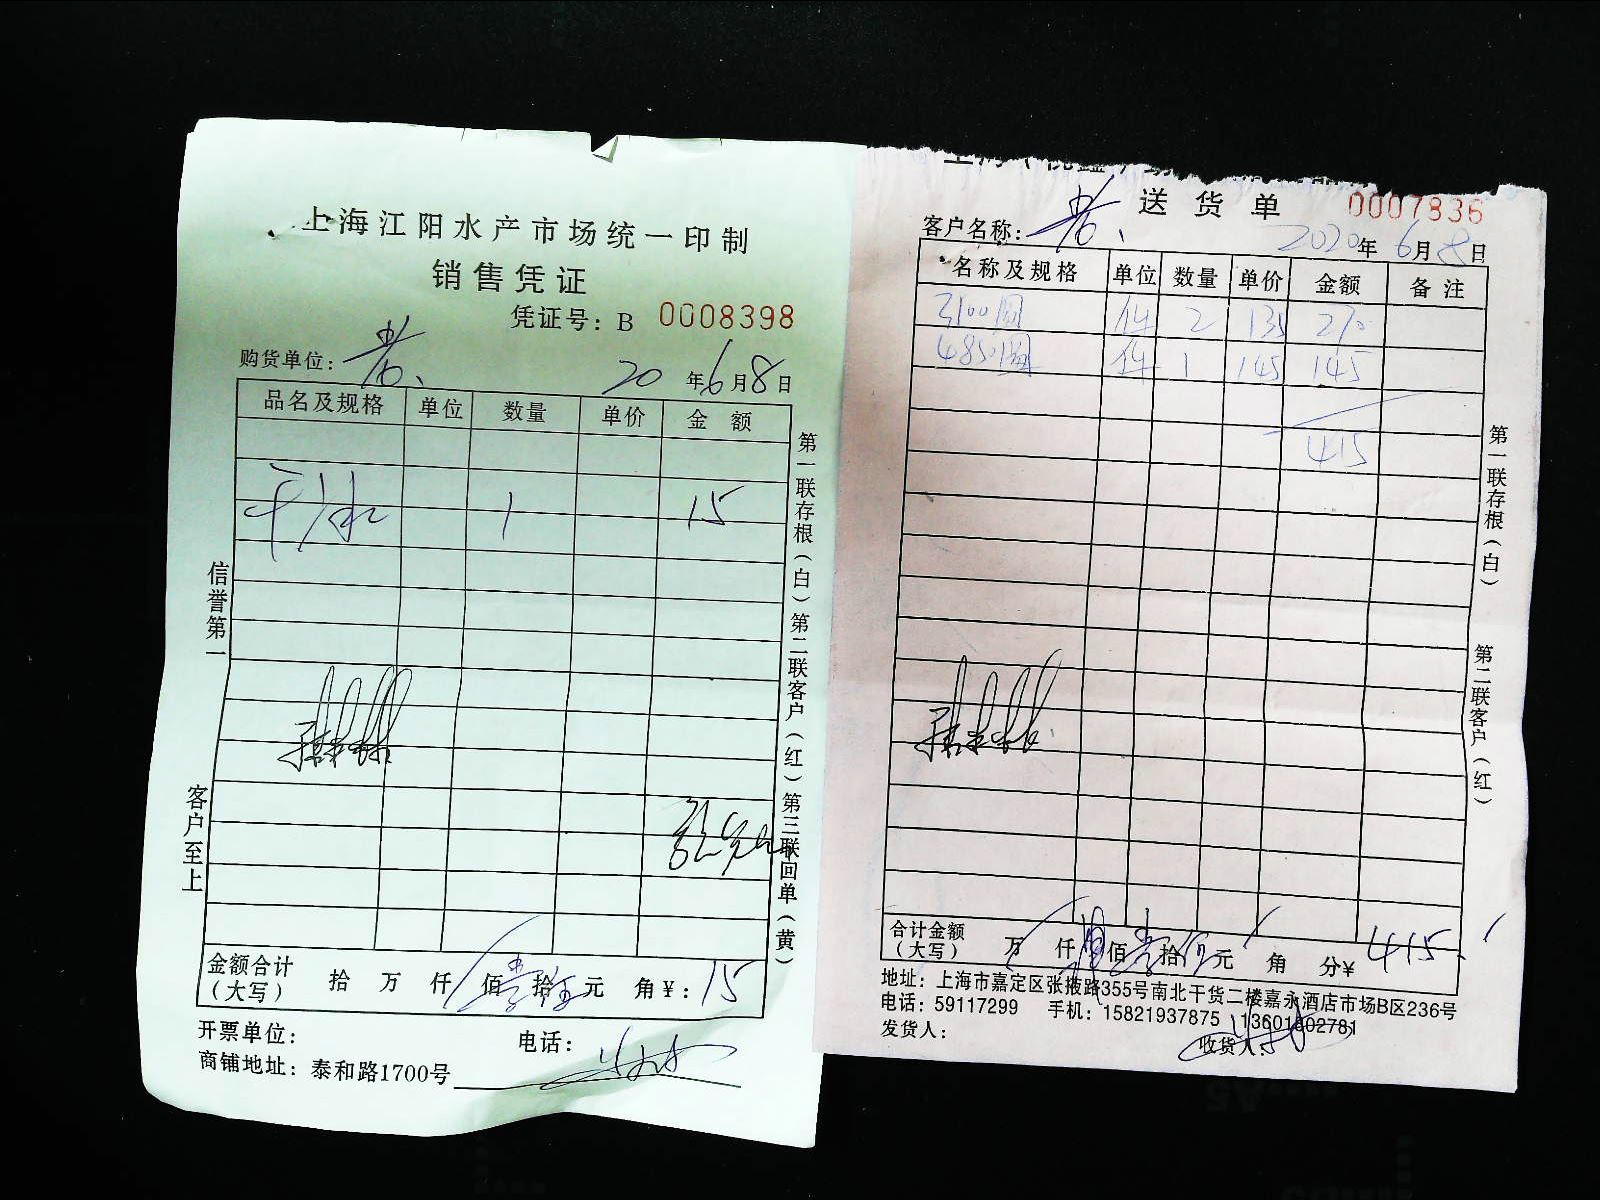 上海江阳水产市场统一印制
销售凭证
凭证号：B 0008398
购货单位：
20 年6月8日
品名及规格 单位 数量 单价 金额
1 15
信誉第一
客户至上
第一联存根（白）第二联客户（红）第三联回单（黄）
金额合计（大写） 拾 万 仟 佰壹拾伍元 角¥：15
开票单位： 电话：
商铺地址：泰和路1700号
送货单 0007836
客户名称：
2020年6月8日
名称及规格 单位 数量 单价 金额 备注
3100圆 件 2 135 270
件 1 145 145
415
第一联存根（白）
第二联客户（红）
合计金额（大写） 万 仟肆佰壹拾伍元 角 分¥ 415
地址：上海市嘉定区张掖路355号南北干货二楼嘉永酒店市场B区236号
电话：59117299 手机：15821937875 13601802781
发货人： 收货人：